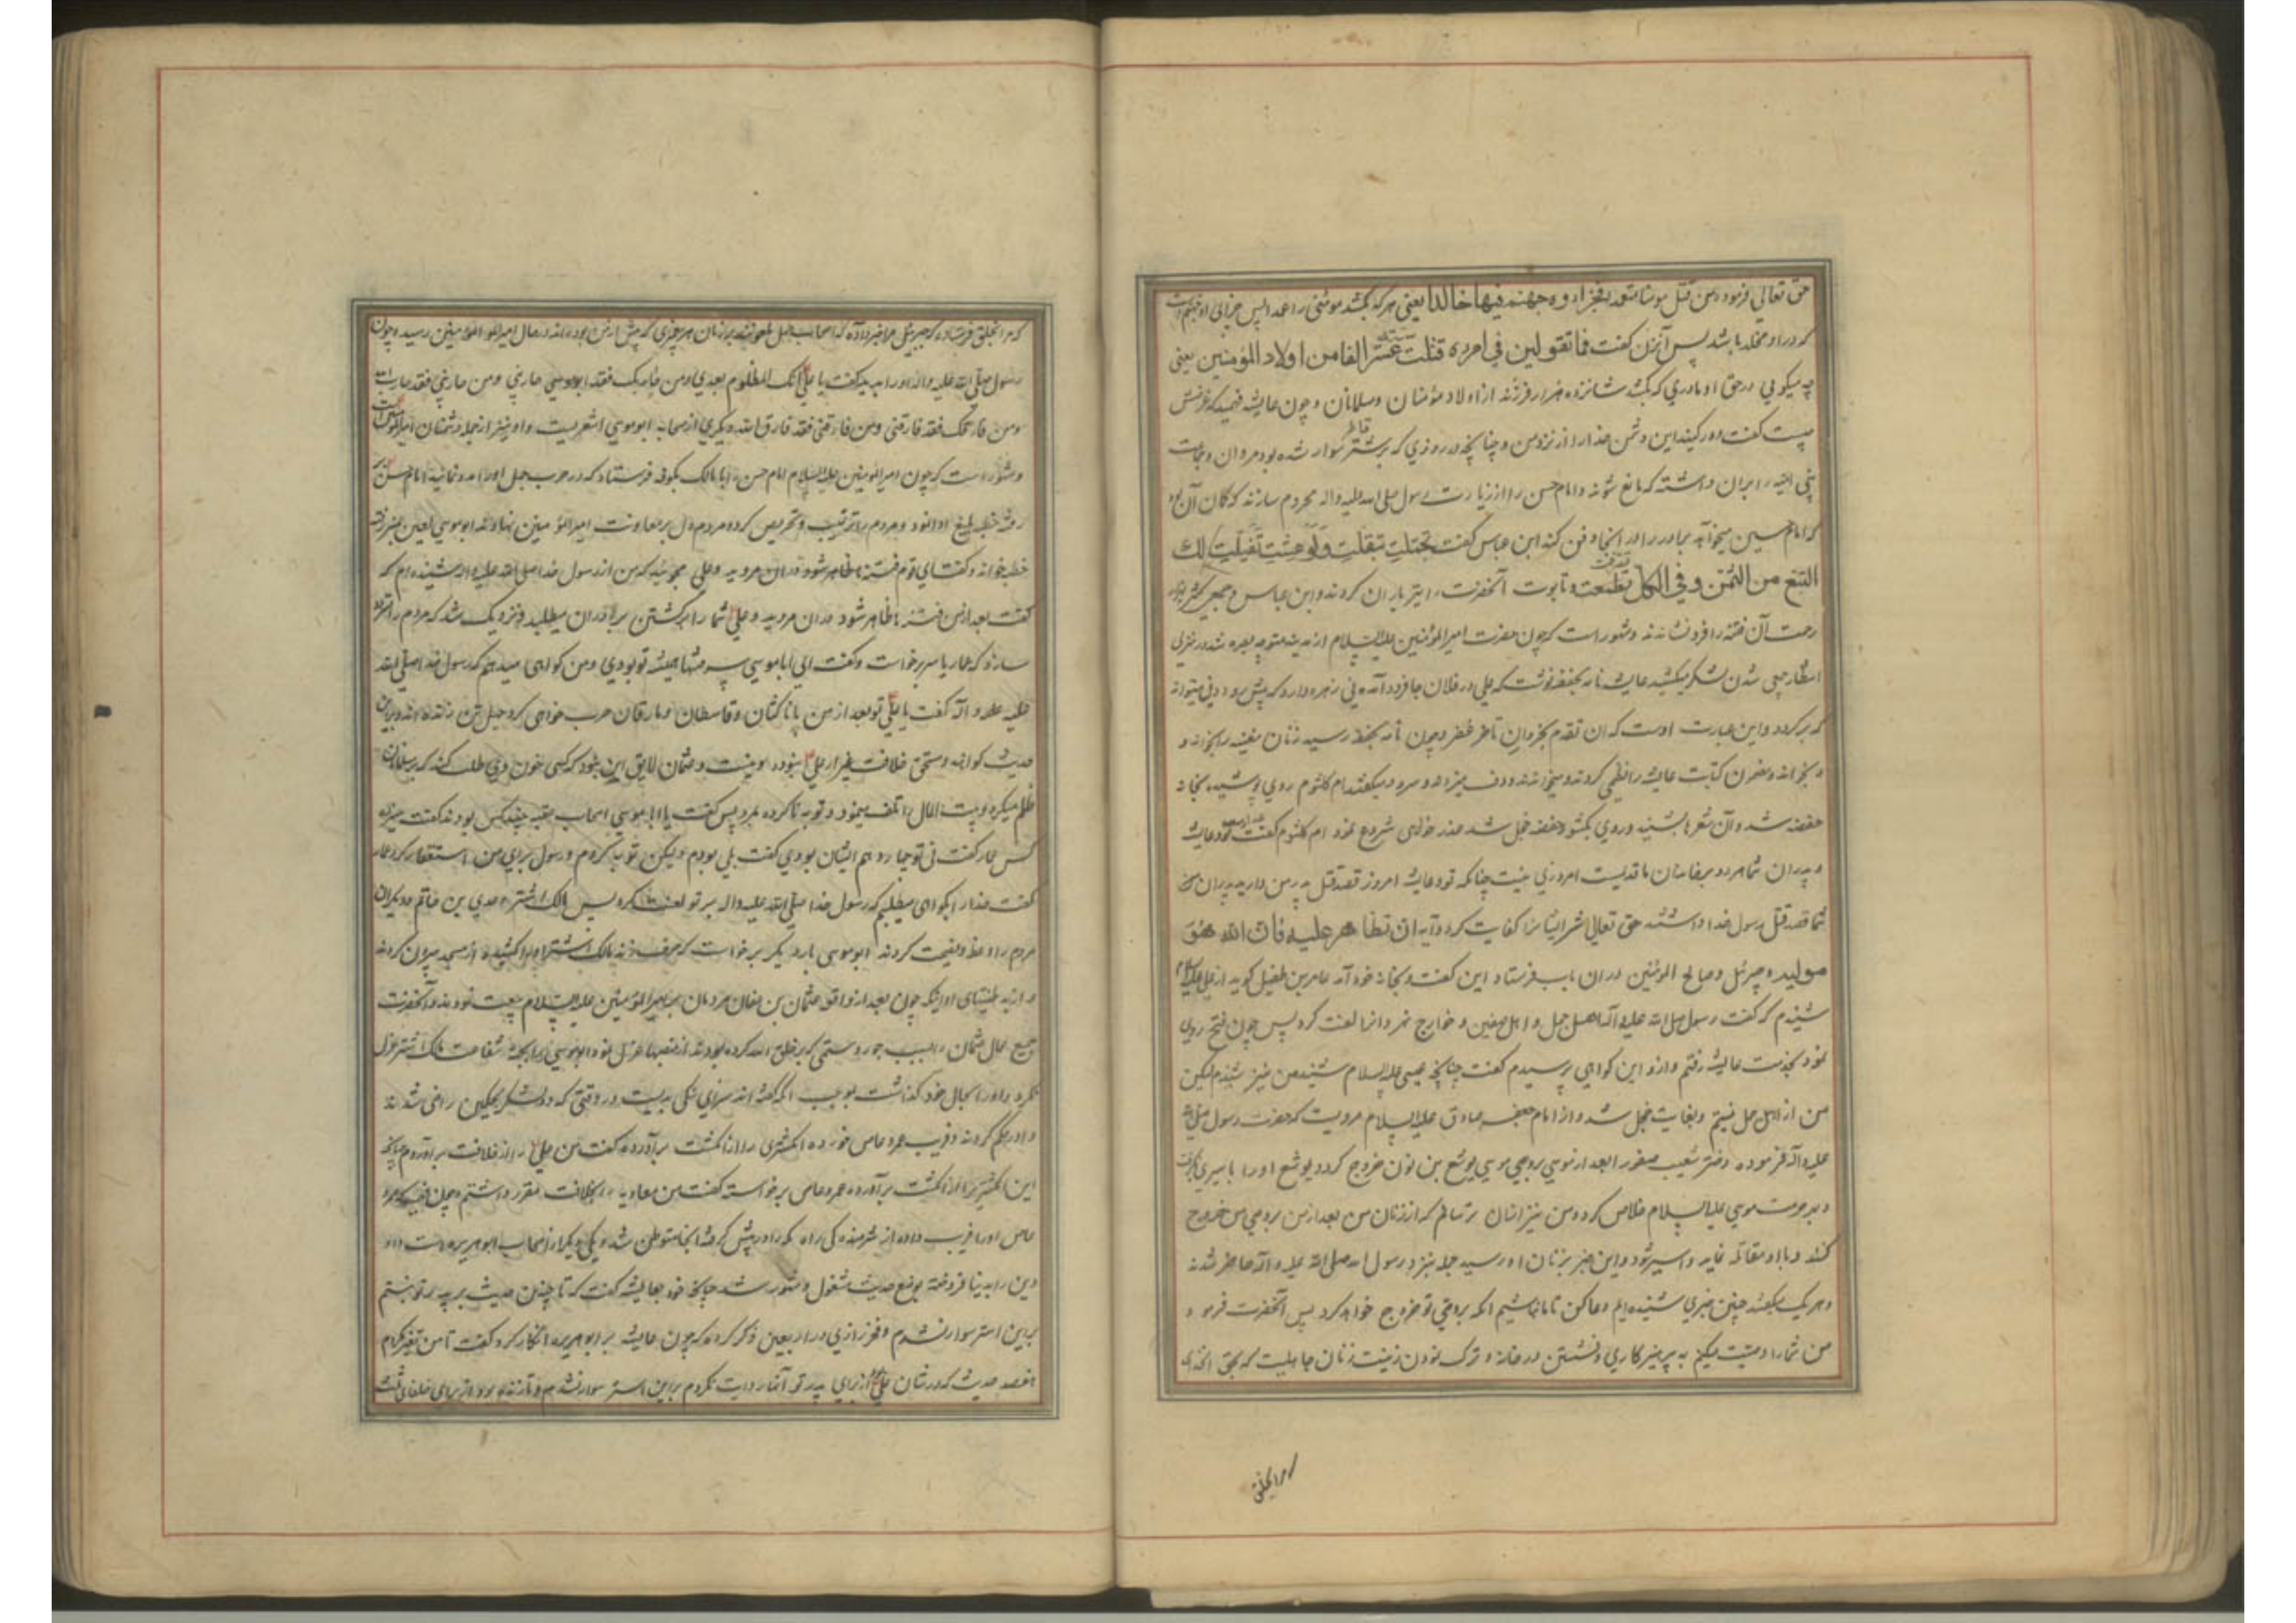 حق تعالی فرموده من قتل مومنا متعمدا فجزاوه جهنم فیها خالدا یعنی هرکه بکشد مومنی را عمدا پس جزای او جهنم است
که در او مخلد باشد پس آنزن کفت فما تقولین فی امراه قتلت ستة عشر الفا من اولاد المؤمنین یعنی
چه میکویی در حق او مادری که بکشد شانزده هزار فرزند از اولاد مؤمنان ومسلمانان وچون عایشه فهمید که غرضش
چیست کفت دور کنید این دشمن خدا را از نزد من وچنانچه در روزی که بر استر سوار شده بود مروان وجماعت
بنی امیه را بران داشته که مانع شوند وامام حسن را از زیارت رسول صلی الله علیه واله محروم سازند که کمان آن بود
که امام حسین میخواهد برادر را در آنجا دفن کند ابن عباس کفت تجملت تبغلت ولو عشت تفیلت لک
التسع من الثمن وفی الکل تصرفت وتابوت آنحضرت را تیر باران کردند وابن عباس وجمعی کثیر
آن فتنه را فرو نشاندند ومشهور است که چون حضرت امیر المؤمنین علیه السلام از مدینه متوجه بصره شد در منزلی
انتظار جمعی شدن لشکر میکشید عایشه نامه بحفصه نوشت که علی در فلان جا فرود آمده نی زهره دارد که پیش رود ونی میتواند
که برکردد واین عبارت اوست که ان تقدم نحر وان تاخر عقر وچون نامه بحفصه رسید زنان مغنیه را بخواند و
ومضمون کتابت عایشه را نظمی کردند ومیخواندند ودف میزدند وسرود میکفتند ام کلثوم روی پوشیده بخانه
حفصه شد وآن شعرها بشنید وروی بکشود حفصه خجل شد وعذر خواهی شروع نمود ام کلثوم کفت عداوت تو وعایشه
وپدران شما هر دو با ما قدیمست امروزی نیست چنانکه تو وعایشه امروز قصد قتل پدر من دارید پدران
شما قصد قتل رسول خدا داشتند حق تعالی شر ایشانرا کفایت کرد وآیه ان تظاهرا علیه فان الله هو
مولیه وجبرئیل وصالح المؤمنین در آن باب فرستاد این کفت وبخانه خود آمد عامر بن طفیل کوید از علی علیه السلام
شنیدم که کفت رسول صلی الله علیه وآله اهل جمل واهل صفین وخوارج نهروانرا لعنت کرد پس چون فتح روی
نمود بخدمت عایشه رفتم وازو این کواهی پرسیدم کفت چنانچه علی علیه السلام شنید من نیز شنیدم لیکن
من از اهل جمل نیستم وبغایت خجل شد واز امام جعفر صادق علیه السلام مرویست که حضرت رسول صلی الله
علیه وآله فرموده دختر شعیب صفورا بعد از موسی بر وصی موسی یوشع بن نون خروج کرد ویوشع او را باسیری
وبحرمت موسی علیه السلام خلاص کرد ومن نیز از زنان من بعد از من بر وصی من خروج
کند وبا او مقاتله نماید واسیر شود واین خبر بزنان او رسید جمله بنزد رسول الله صلی الله علیه وآله حاضر شدند
وهر یک میکفتند چنین خبری شنیده ایم دعا کن تا ما نباشیم آنکه بر وصی تو خروج خواهد کرد پس آنحضرت فرمود
من شما را وصیت میکنم به پرهیزکاری ونشستن در خانه وترک نمودن زینت زنان جاهلیت که بحق آنخدای
که مرا بخلق
که مرا بخلق فرستاده که جبرئیل مرا خبر داده که اصحاب جمل ملعونند بر زبان هر پیغمبری که پیش از من بوده اند در حال امیر المؤمنین رسید وچون
رسول صلی الله علیه واله او را بدید کفت یا علی انک المظلوم بعدی ومن حاربک فقد حاربنی ومن حاربنی فقد حارب الله
ومن فارقک فقد فارقنی ومن فارقنی فقد فارق الله دیکری از صحابه ابو موسی اشعریست واو نیز از جمله دشمنان امیر المؤمنین است
ومشهور است که چون امیر المؤمنین علیه السلام امام حسن را با مالک بکوفه فرستاد که در حرب جمل او را مدد نمایند امام حسن
رفته خطبه بلیغ ادا نمود ومردم را ترغیب وتحریص کرده مردم دل بر معاونت امیر المؤمنین نهادند ابو موسی لعین بمنبر رفت
خطبه خواند وکفت ای قوم فتنه ها ظاهر شود در آن مروید وعلی مجویید که من از رسول خدا صلی الله علیه واله شنیده ام که
کفت بعد از من فتنه ها ظاهر شود در آن مروید وعلی شما را بر کشتن برادران میطلبد ونزدیک شد که مردم را
سازد که عمار یاسر برخواست وکفت ای ابا موسی سر فتنها همیشه تو بودی ومن کواهی میدهم که رسول خدا صلی الله
علیه وآله کفت یا علی تو بعد از من با ناکثان وقاسطان ومارقان حرب خواهی کرد
حدیث کواهند ومستحق خلافت غیر از علی نبوده ونیست وعثمان لایق این نبود که کسی خون وی طلب کند که بر مسلمانان
ظلم میکرد وبیت المال را تلف مینمود وتوبه نا کرده بمرد پس کفت یا ابا موسی اصحاب عقبه چند کس بودند کفت سیزده
کس عمار کفت نی تو چهاردهم ایشان بودی کفت بلی بودم ولیکن توبه کردم ورسول برای من استغفار کرد عمار
کفت خدا را بکواهی میطلبم که رسول خدا صلی الله علیه واله بر تو لعنت کرد پس مالک اشتر وعدی بن حاتم ودیکران
مردم را وعظ ونصیحت کردند ابو موسی بار دیکر برخواست که حرف زند مالک اشتر او را کشیده از مسجد بیرون کردند
واز بد طینتیهای او اینکه چون بعد از واقعه عثمان بن عفان مردمان با امیر المؤمنین علیه السلام بیعت نمودند وآنحضرت
جمیع عمال عثمان را بسبب جور وستمی که بر خلق الله کرده بودند از منصبها عزل نمود ابو موسی را بجهة شفاعت مالک اشتر عزل
نکرد واو را بحال خود کذاشت بموجب آنکه کفته اند سزای نیکی بدیست در وقتی که دو لشکر بحکمین راضی شدند
واو را حکم کردند وفریب عمرو عاص خورده انکشتری را از انکشت برآورده کفت من علی را از خلافت برآوردم چنانچه
این انکشتر را از انکشت برآورده عمرو عاص برخواسته کفت من معاویه را بخلافت مقرر داشتم وچون فریب که عمرو
عاص او را فریب داده از شرمندکی راه مکه را در پیش کرفته آنجا متوطن شد ویکی دیکر از اصحاب ابو هریره است واو
دین را بدنیا فروخته بوضع حدیث مشغول ومشهور شد چنانچه خود بعایشه کفت که تا چندین حدیث بر پدر تو نبستم
بر این استر سوار نشدم وفخر رازی در اربعین ذکر کرده که چون عایشه بر ابو هریره انکار کرد کفت تا من
حدیث که در شان علی از برای پدر تو آنها روایت نکردم بر این استر سوار نشدم وتا زنده بود از برای خلفای ثلثه